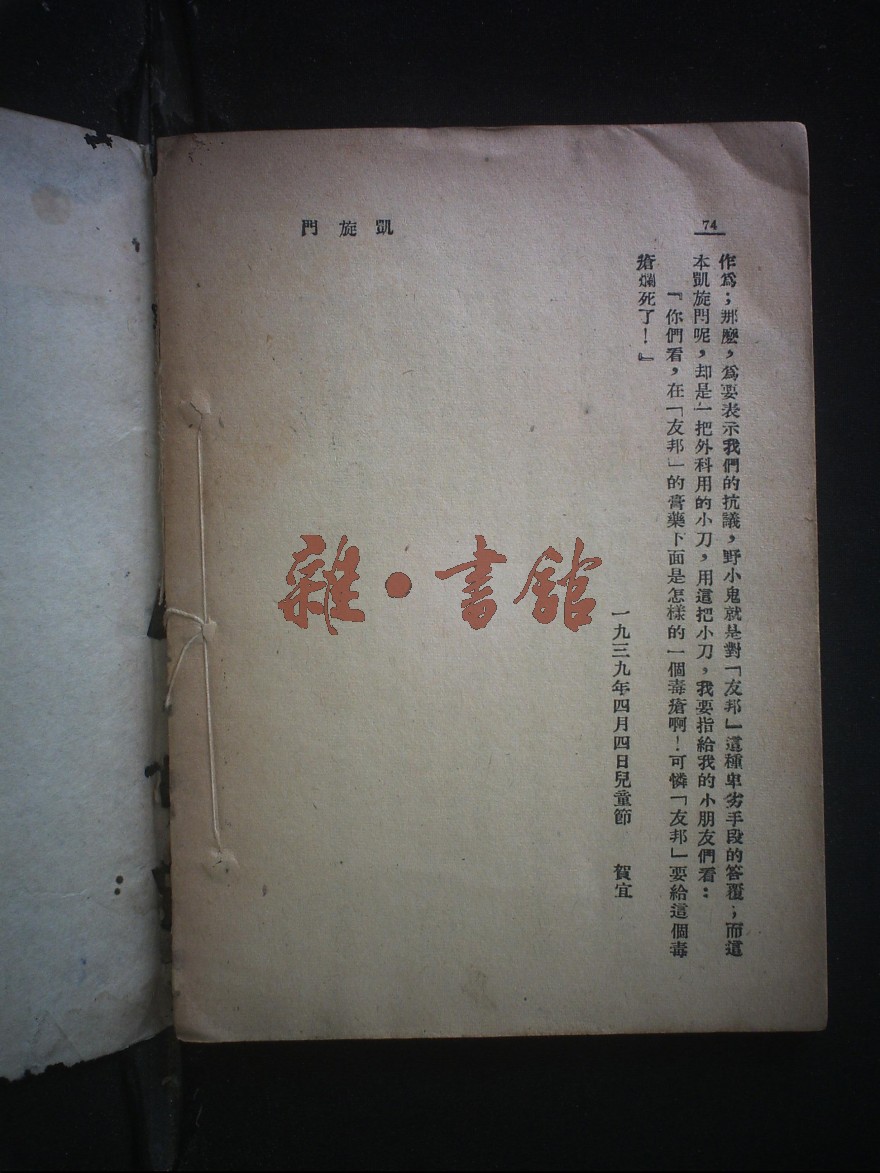 74
凱旋門
作爲；那麼，爲要表示我們的抗議，野小鬼就是對「友邦」這種卑劣手段的答覆；而這
本凱旋門呢，却是一把外科用的小刀，用這把小刀，我要指給我的小朋友們看：
『你們看，在「友邦」的膏藥下面是怎樣的一個毒瘡啊！可憐「友邦」要給這個毒
瘡爛死了！』
一九三九年四月四日兒童節　賀宜
雜·書館